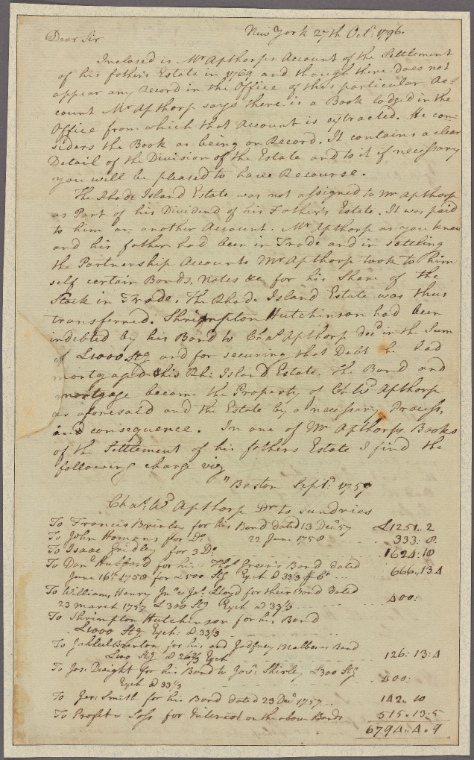 New York 27th Oct. 1796
Dear Sir
Inclosed is Mr Apthorps Account of the Settlement
of his fathers Estate in 1759 and though there does not
appear any Record in the Office of this particular Ac-
count Mr Apthorp says there is a Book lodged in the
Office from which that Account is extracted. He con-
siders the Book as being on Record. It contains a clear
Detail of the Division of the Estate and to it if necessary
you will be pleased to have Recourse.
The Rhode Island Estate was not assigned to Mr Apthorp
as Part of his Dividend of his Father's Estate. It was paid
to him on another Account. Mr Apthorp as you know
and his father had been in Trade and in Settling
the Partnership Accounts Mr Apthorp took to him
self certain Bonds, Notes &c for his Share of the
Stock in Trade. The Rhode Island Estate was thus
transferred. Shrimpton Hutchinson had been
indebted by his Bond to Chas Apthorp decd in the Sum
of £1000 Stg and for securing that Debt he had
mortgaged this Rho Island Estate. The Bond and
mortgage became the Property of Ch Wd Apthorp
as aforesaid and the Estate by a necessary Process,
and consequence. In one of Mr Apthorps Books
of the Settlement of his fathers Estate I find the
following charge viz
Boston Septr. 1759
Chas. Wd Apthorp Dr to sundries
To Francis Brinley for his Bond dated 13 Dec 57 £1251.2
To John Homans for Do 22 June 1750 333.8
To Isaac Gridley for 3 Do 1624.10
To for his Bond dated
June 16th 1750 for £500 Stg Exch @ 33/3 666.13.4
To William Henry Jno & Jas. Lloyd for their Bond dated
23 march 1757 £300 Stg Exch @ 33/3 400:
To Shrimpton Hutchinson for his Bond
£1000 Stg Exch @ 33/3
To Jahleel Brenton for his and Godfrey Malbone Bond
£100 Stg Exch 126:13:4
To Jos: Dwight for his Bond to Jos. Shirly £300 Stg
Exch @ 33/3 400:
To Jere Smith for his Bond dated 29 Decr 1757 142.10
To Profit & Loss for Interest on the above Bonds 515.13.5
6794.4.9